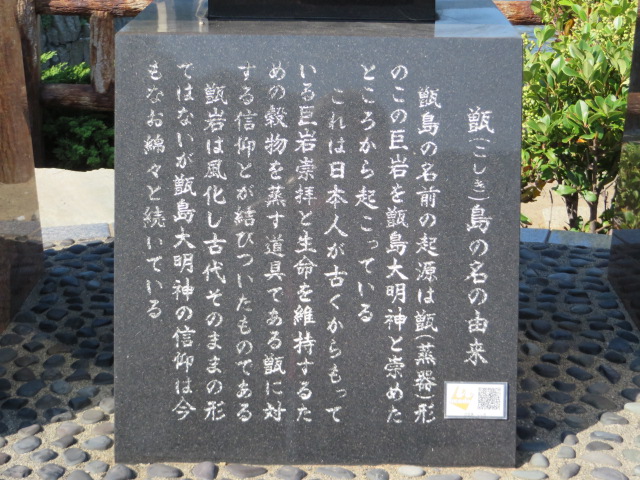 甑(こしき)島の名の由来
甑島の名前の起源は甑(蒸器)形
のこの巨岩を甑島大明神と崇めた
ところから起こっている
これは日本人が古くからもって
いる巨岩崇拝と生命を維持するた
めの穀物を蒸す道具である甑に対
する信仰とが結びついたものである
甑岩は風化し古代そのままの形
ではないが甑島大明神の信仰は今
もなお綿々と続いている